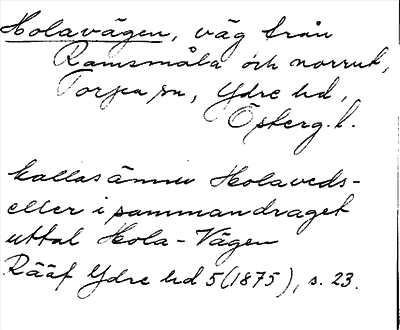 Holavägen, väg från
Ramsmåla och norrut,
Torpa sn, Ydre hd,
Österg. l.
kallas ännu Holaveds-
eller i sammandraget
uttal Hola-Vägen
Rääf Ydre hd 5 (1875), s. 23.